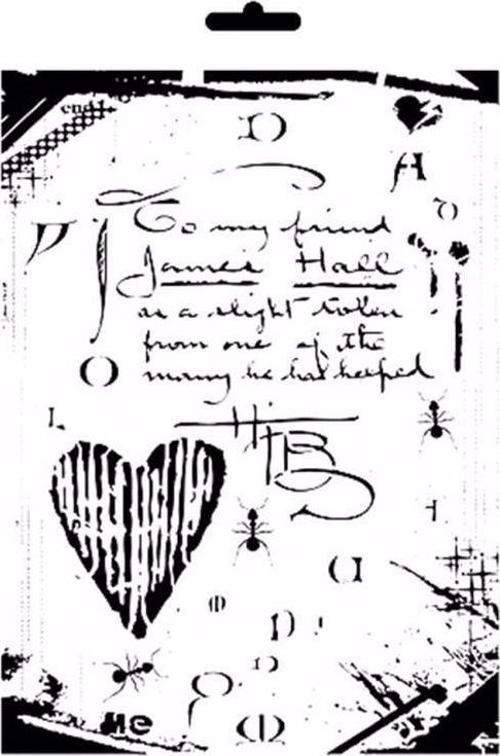 end
D
A
D
To my friend
James Hall
as a slight token
from one of the
many he has helped
O
L
HB
a
D
He